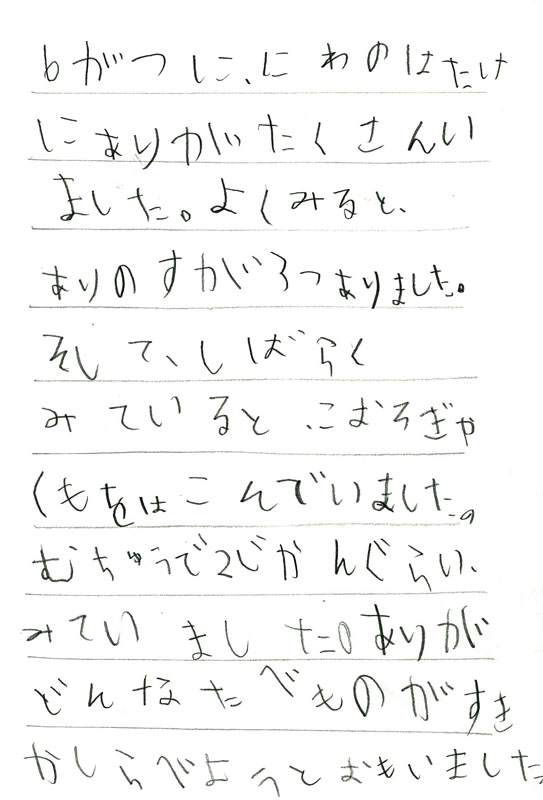 6がつに、にわのはたけ
にありがたくさんい
ました。よくみると、
ありのすが3つありました。
そして、しばらく
みていると、こおろぎや
くもをはこんでいました。
むちゅうで2じかんぐらい、
みていました。ありが
どんなたべものがすき
かしらべようとおもいました